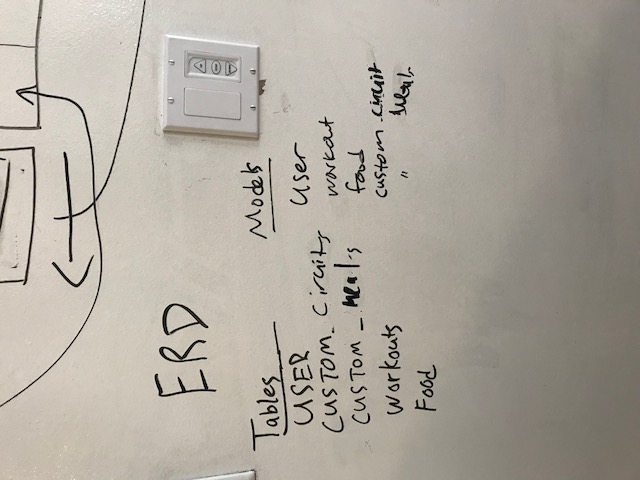 ERD
Tables
USER
CUSTOM_Circuits
CUSTOM_Meals
Workouts
Food
Models
User
workout
food
custom_circuit
" Meals